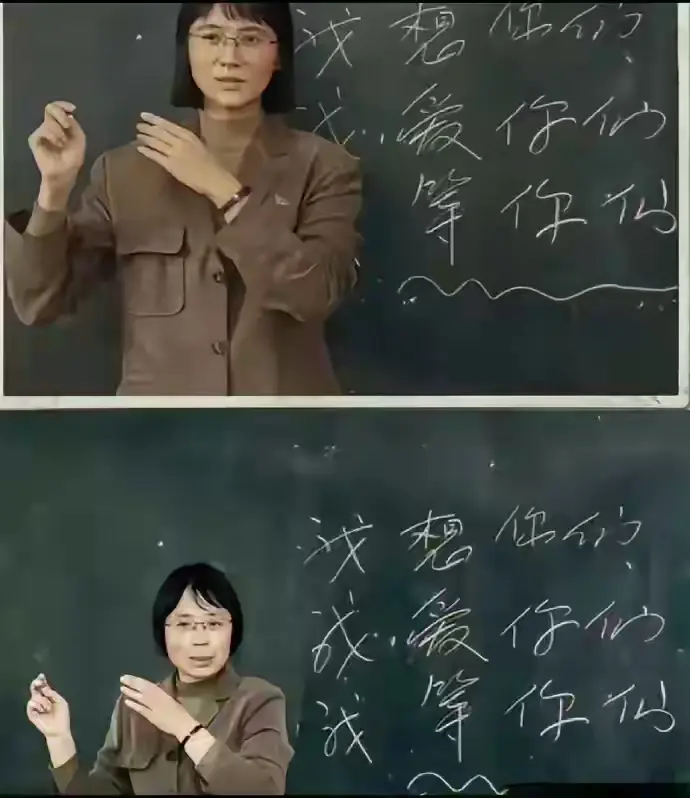 我想你们
我爱你们
等你们
我想你们
我爱你们
我等你们